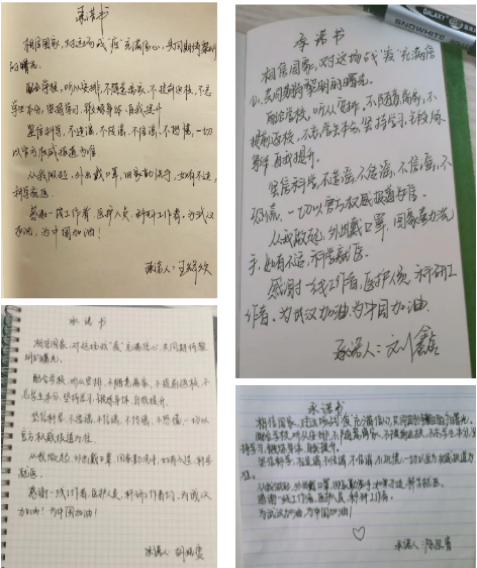 承诺书
相信国家,对这场战“疫”充满信心,共同期待黎明
的曙光。
配合学校,听从安排,不随意离家,不提前返校,不忘
学生本分,坚持学习,锻炼身体,自我提升
坚信科学,不造谣,不传谣,不信谣,不恐慌,一切
以官方权威报道为准
从我做起,外出戴口罩,回家勤洗手,如有不适,
科学就医。
感谢一线工作者,医护人员,科研工作者。为武汉
加油,为中国加油!
承诺人:
承诺书
相信国家,对这场战“疫”充满信
心,共同期待黎明的曙光。
配合学校,听从安排,不随意离家,不
提前返校,不忘学生本分,坚持学习,锻炼
身体,自我提升。
坚信科学,不造谣,不传谣,不信谣,不
恐慌,一切以官方权威报道为准。
从我做起,外出戴口罩,回家勤洗
手,如有不适,科学就医。
感谢一线工作者,医护人员,科研工
作者。为武汉加油,为中国加油。
承诺人:刘鑫
SNOWHITE
承诺书
相信国家,对这场战“疫”充满信心,共同期待黎
明的曙光。
配合学校,听从安排,不随意离家,不提前返校,不
忘学生本分,坚持学习,锻炼身体,自我提升。
坚信科学,不造谣,不信谣,不传谣,不恐慌,一切以
官方权威报道为准。
从我做起,外出戴口罩,回家勤洗手,如有不适,科学
就医。
感谢一线工作者,医护人员,科研工作者们,为武汉
加油!为中国加油!
承诺人
承诺书
相信国家,对这场战“疫”充满信心,共同期待黎明的曙光。
配合学校,听从安排,不随意离家,不提前返校,不忘学生本分,坚
持学习,锻炼身体,自我提升。
坚信科学,不造谣,不传谣,不信谣,不恐慌,一切以官方权威报道为
准。
从我做起,外出戴口罩,回家勤洗手,如有不适,科学就医。
感谢一线工作者,医护人员,科研工作者。
为武汉加油,为中国加油!
承诺人: